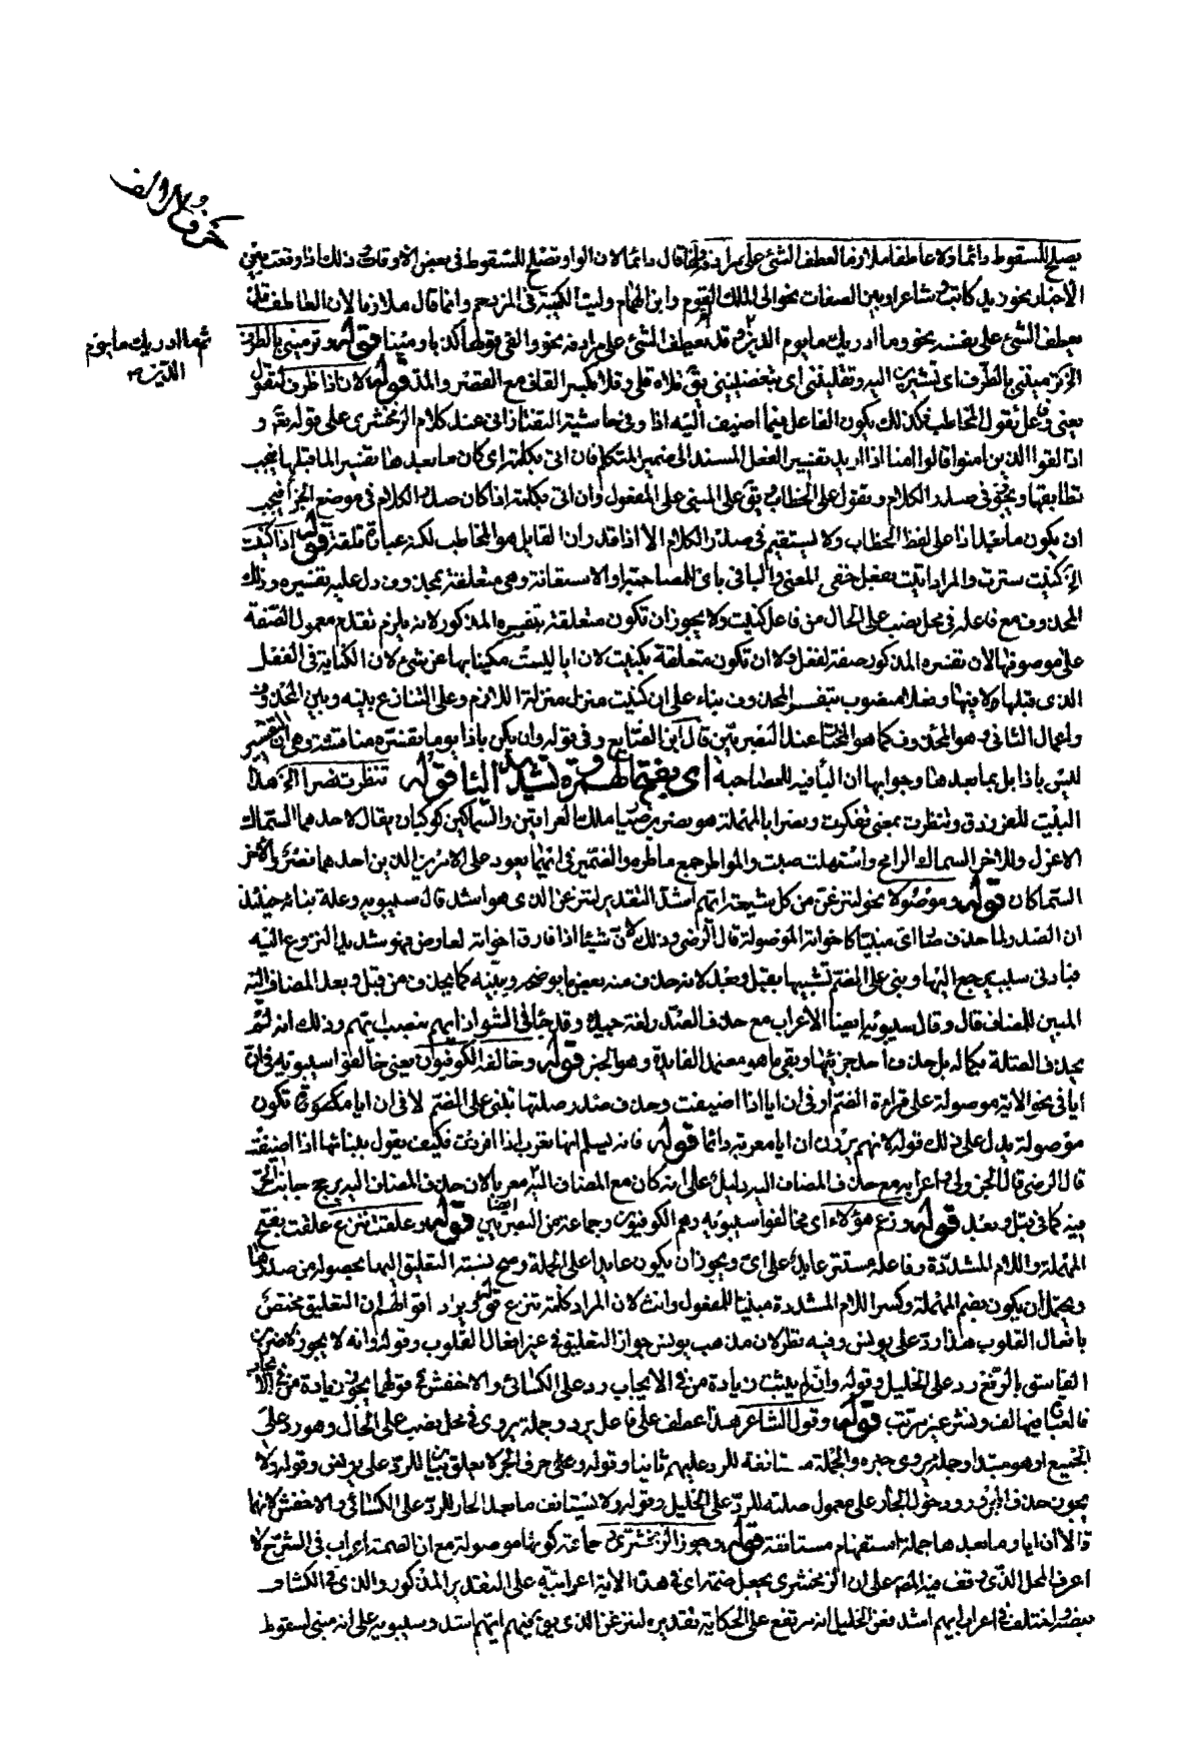 حرف الالف
يصلح للسقوط دائما ولا عاطفا ملازما لعطف الشئ على مرادفه وانما قال دائما لان الواو تصلح للسقوط في بعض الاوقات وذلك اذا وقعت بين
الاخبار نحو زيد كاتب وشاعر او بين الصفات نحو الى الملك القوم وابن الهمام وليث الكتيبة في المزدحم وانما قال ملازما لان العاطف قد
يعطف الشئ على نفسه نحو وما ادريك ما يوم الدين وقد يعطف الشئ على مرادفه نحو والفى قولها كذبا ومينا قوله وترمينني بالطرف
ثم ما ادريك ما يوم الدين
الخ ترمينني بالطرف اى تشيرين اليه وتقلينني اى تبغضينني يق قلاه قلى وقلاء بكسر القاف مع القصر والمد قوله لان اذا ظرف لتقول
يعنى وفاعل تقول المخاطب فكذلك يكون الفاعل فيما اضيف اليه اذا وفي حاشية التفتازاني عند كلام الزمخشرى على قوله تع و
اذا لقوا الذين امنوا قالوا امنا اذا اريد تفسير الفعل المسند الى ضمير المتكلم فان اتى بكلمة اى كان ما بعدها تفسير لما قبلها فيجب
تطابقهما ويجوز في صدر الكلام ويقول على الخطاب ويق على المبنى على المفعول وان اتى بكلمة اذا كان صدر الكلام في موضع الجزا فيجب
ان يكون ما بعد اذا على لفظ الخطاب ولا يستقيم في صدر الكلام الا اذا قدر ان القايل هو المخاطب لكنه عبارة قلقة قوله اذا كنيت
الخ كنيت سترت والمراد اتيت بفعل خفى المعنى والبا في باى للمصاحبة او الاستعانة وهى متعلقة بمحذوف دل عليه تفسيره وذلك
المحذوف مع فاعله في محل نصب على الحال من فاعل كنيت ولا يجوز ان تكون متعلقة بتفسيره المذكور لانه يلزم تقدم معمول الصفة
على موصوفها لان تفسره المذكور صفة لفعل ولا ان تكون متعلقة بكنيت لان ايا ليست مكنيا بها عن شئ لان الكناية في الفعل
الذى قبلها ولا فيها وفعلا منصوب بتفسر المحذوف بناء على ان كنيت منزل منزلة اللازم وعلى التنازع بينه وبين المحذوف
واعمال الثاني وهو المحذوف كما هو المختار عند البصريين قال ابن الصايغ وفي قوله وان يكن باذا يوما تفسره مناقشة وهى ان التفسير
ليس باذا بل بما بعدها وجوابها ان البا فيه للمصاحبة اى بفتح الهمزة وتشديد اليا قوله تنظرت نصرا الخ هذا
البيت للفرزدق وتنظرت بمعنى تفكرت ونصرا بالمهملة هو نصر بن سيار ملك العراقين والسماكين كوكبان يقال لاحدهما السماك
الاعزل وللاخر السماك الرامح واستهلت صبت والمواطر جمع ماطر والضمير في ايهما يعود على الامرين الذين احدهما نصر والاخر
السماكان قوله وموصولا نحو لننزعن من كل شيعة ايهم اشد التقدير لننزعن الذى هو اشد قال سيبويه وعلة بنائه حينئذ
ان الصدر لما حذف صار اى مبنيا كاخواته الموصولة قال الرضى وذلك لان شيئا اذا فارق اخواته لعارض فهو شديد النزوع اليه
فبادنى سبب يرجع اليها وبنى على الضم تشبيها بقبل وبعد لانه حذف منه بعض ما يوضحه ويبينه كما يحذف من قبل وبعد المضاف اليه
المبين للمضاف قال وقال سيبويه ايضا الاعراب مع حذف الصدر لغة جيدة وقد جاء في الشواذ ايهم بنصب ايهم وذلك انه لم
يحذف الصلة بكمالها بل حذف احد جزئيها وبقى ما هو معتمد الفايدة وهو الخبر قوله وخالفه الكوفيون يعنى خالفوا سيبويه في ان
ايا في نحو الاية موصولة على قراءة الضم او في ان ايا اذا اضيفت وحذف صدر صلتها تبنى على الضم لا في ان ايا تكون
موصولة يدل على ذلك قوله لانهم يرون ان ايا معربة دائما قوله فانه يسلم انها تعرب اذا افردت فكيف يقول ببنائها اذا اضيفت
قال الرضى قال الجزولى واعرابه مع حذف المضاف اليه دليل على انه كان مع المضاف اليه معربا لان حذف المضاف اليه يرجح جانب
فيه كما في قبل وبعد قوله وزعم هؤلاء اى مخالفوا سيبويه وهم الكوفيون وجماعة من البصريين ايضا قوله وعلقت ننزع علقت بفتح
المهملة واللام المشددة وفاعله مستتر عايد على اى ويجوز ان يكون عايدا على الجملة وصح نسبة التعليق اليها بحصوله من صدرها
ويحتمل ان يكون بضم المهملة وكسر اللام المشددة مبنيا للمفعول وانث لان المراد كلمة ننزع قوله ويرد اقوالهم ان التعليق مختص
بافعال القلوب هذا رد على يونس وفيه نظر لان مذهب يونس جواز التعليق في غير افعال القلوب وقوله وانه لا يجوز لاضربن
الفاسق بالرفع رد على الخليل وقوله وان لم يثبت زيادة من في الايجاب رد على الكسائى والاخفش في قولهما بجواز زيادة من في الايجاب
فالعبا فيها لف ونشر غير مرتب قوله وقول الشاعر هذا عطف على فاعل يرد وجملة يروى في محل نصب على الحال وهو رد على
الجميع او هو مبتدا وجملة يروى خبره والجملة مستانفة للرد عليهم ثانيا وقوله وعلى حرف الجر لا يعلق بيان للرد على يونس وقوله ولا
يجوز حذف المجرور ودخول الجار على معمول صلته للرد على الخليل وقوله ولا يستانف ما بعد الجار للرد على الكسائى والاخفش لانهما
قالا ان ايا وما بعدها جملة استفهام مستانفة قوله وجوز الزمخشرى وجماعة كونها موصولة مع ان الضمة اعراب في الشرح لا
اعرف المحل الذى وقف فيه المص على ان الزمخشرى يجعل ضمة اى في هذه الاية اعرابية على التقدير المذكور والذى في الكشاف
بنصه اختلف في اعراب ايهم اشد فعن الخليل انه مرتفع على الحكاية تقديره لننزعن الذى يق فيهم ايهم اشد وسيبويه على انه مبنى لسقوط